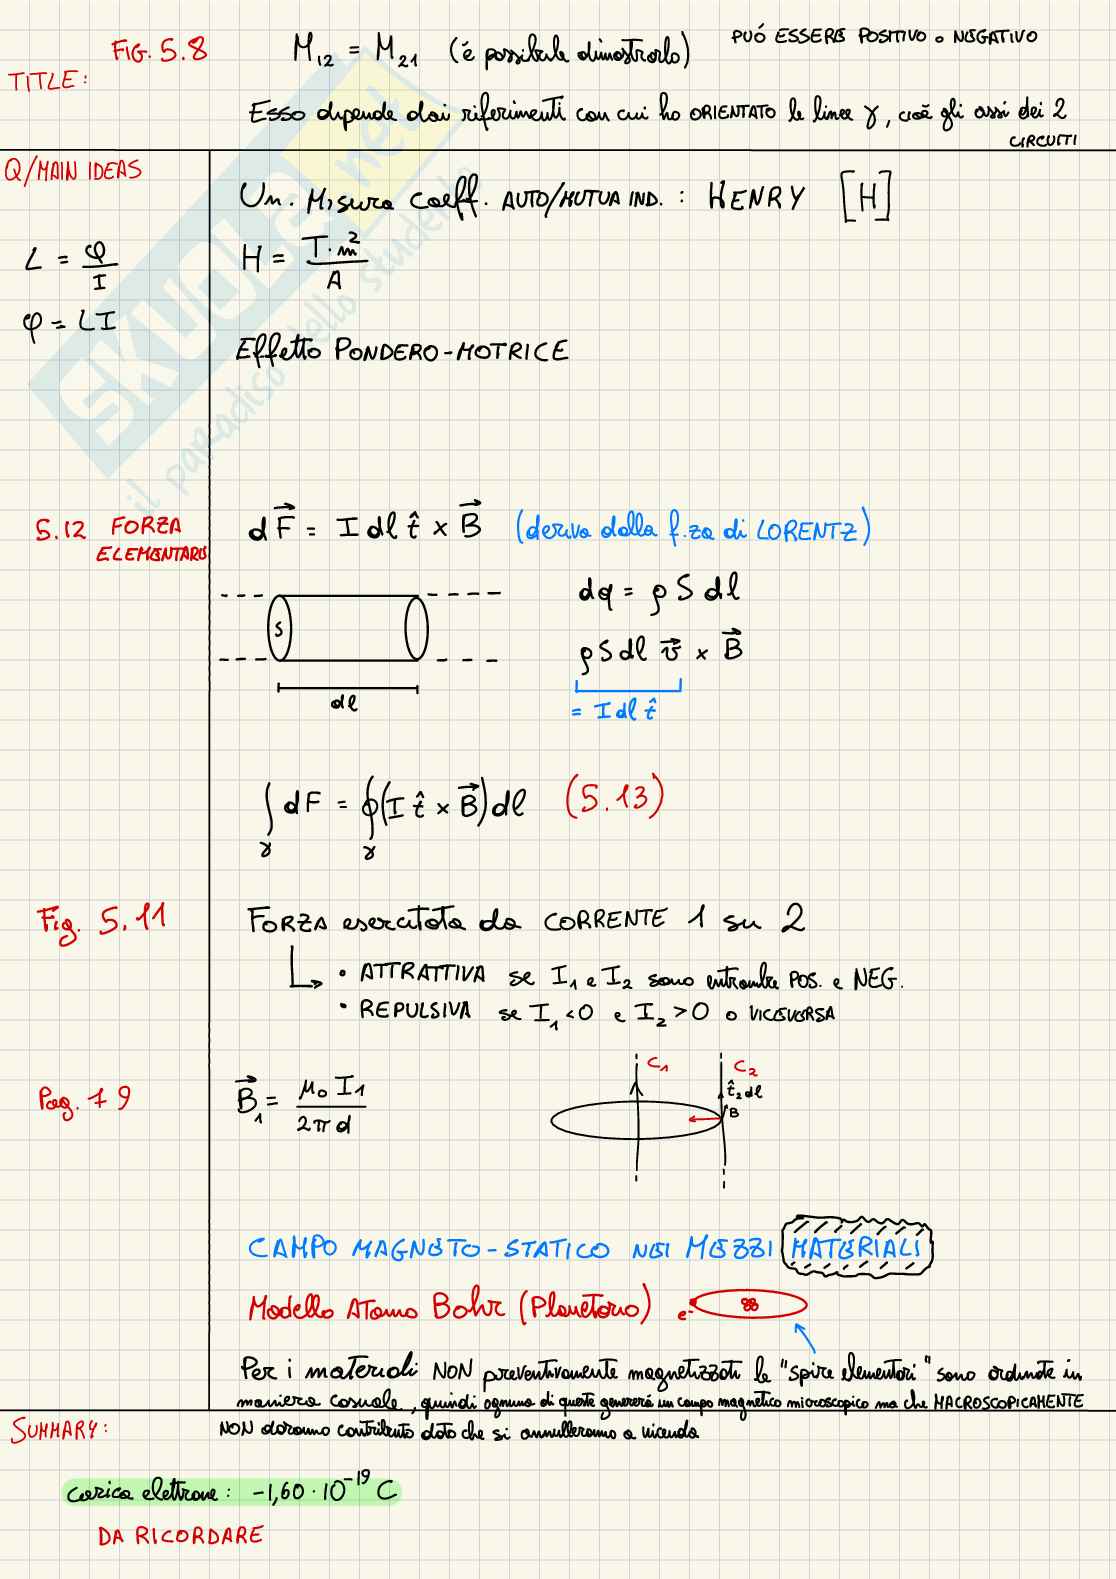 FIG. 5.8
M₁₂ = M₂₁ (é possibile dimostrarlo)
PUÓ ESSERE POSITIVO o NEGATIVO
TITLE:
Esso dipende dai riferimenti con cui ho ORIENTATO le linee γ, cioè gli assi dei 2
CIRCUITI
Q/MAIN IDEAS
Un. Misura Coeff. AUTO/MUTUA IND. : HENRY [H]
L = φ/I
H = T·m²/A
φ = LI
Effetto PONDERO-MOTRICE
5.12 FORZA
ELEMENTARE
dF⃗ = I dl t̂ × B⃗ (deriva dalla f.za di LORENTZ)
S
dl
dq = ρ S dl
ρ S dl v⃗ × B⃗
= I dl t̂
∫γ dF = ∮γ (I t̂ × B⃗) dl (5.13)
Fig. 5.11
FORZA esercitata da CORRENTE 1 su 2
• ATTRATTIVA se I₁ e I₂ sono entrambe POS. e NEG.
• REPULSIVA se I₁<0 e I₂>0 o VICEVERSA
Pag. 79
B⃗₁ = μ₀ I₁/2π d
C₁
C₂
t̂₂ dl
B
CAMPO MAGNETO-STATICO NEI MEZZI MATERIALI
Modello Atomo Bohr (Planetario)
e⁻
Per i materiali NON preventivamente magnetizzati le "spire elementari" sono ordinate in
maniera casuale, quindi ognuna di queste genererá un campo magnetico microscopico ma che MACROSCOPICAMENTE
NON daranno contributo dato che si annulleranno a vicenda
SUMMARY:
carica elettrone: -1,60·10⁻¹⁹ C
DA RICORDARE
SKUOLA.net
il paradiso dello studente